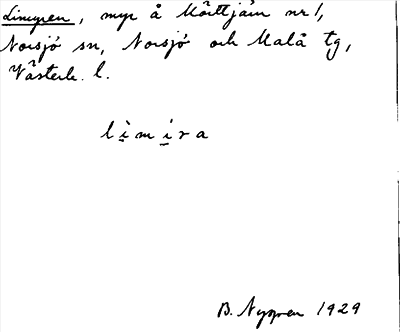 Limyren, myr å Mörttjärn nr 1,
Norsjö sn, Norsjö och Malå tg,
Västerb. l.
lìmira
B. Nygren 1929